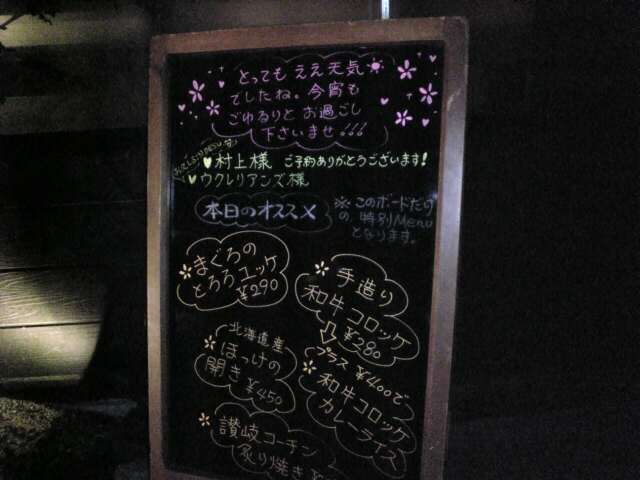 とっても ええ天気
でしたね。今宵も
ごゆるりと お過ごし
下さいませ!!!
村上様 ご予約ありがとうございます!
ウクレリアンズ様
本日のオススメ
※このボードだけ
の 特別Menu
となります。
まぐろの
とろろユッケ
¥290
手造り
和牛コロッケ
¥280
プラス ¥400で
和牛コロッケ
カレーライス
北海道産
ほっけの
開き ¥450
讃岐コーチン
炙り焼き